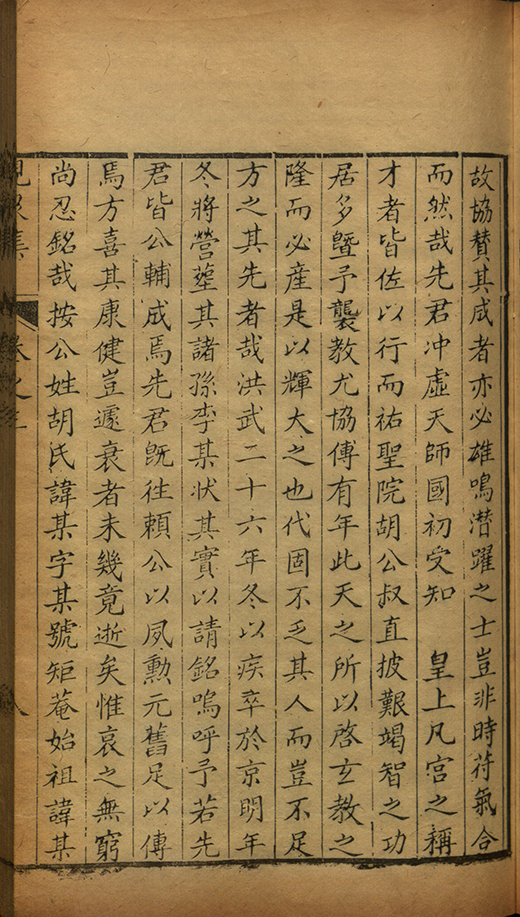 故協賛其咸者亦必雄鳴潜躍之士豈非時符氣合
而然哉先君冲虛天師國初受知　皇上凡宮之稱
才者皆佐以行而祐聖院胡公叔直披艱竭智之功
居多暨予襲教尤協傅有年此天之所以啓玄教之
隆而必産是以輝大之也代固不乏其人而豈不足
方之其先者哉洪武二十六年冬以疾卒於京明年
冬將營塟其諸孫李某状其實以請銘嗚呼予若先
君皆公輔成焉先君既徃頼公以夙勲元舊足以傳
焉方喜其康健豈遽衰者未幾竟逝矣惟哀之無窮
尚忍銘哉按公姓胡氏諱某字某號矩菴始祖諱某
卷之三